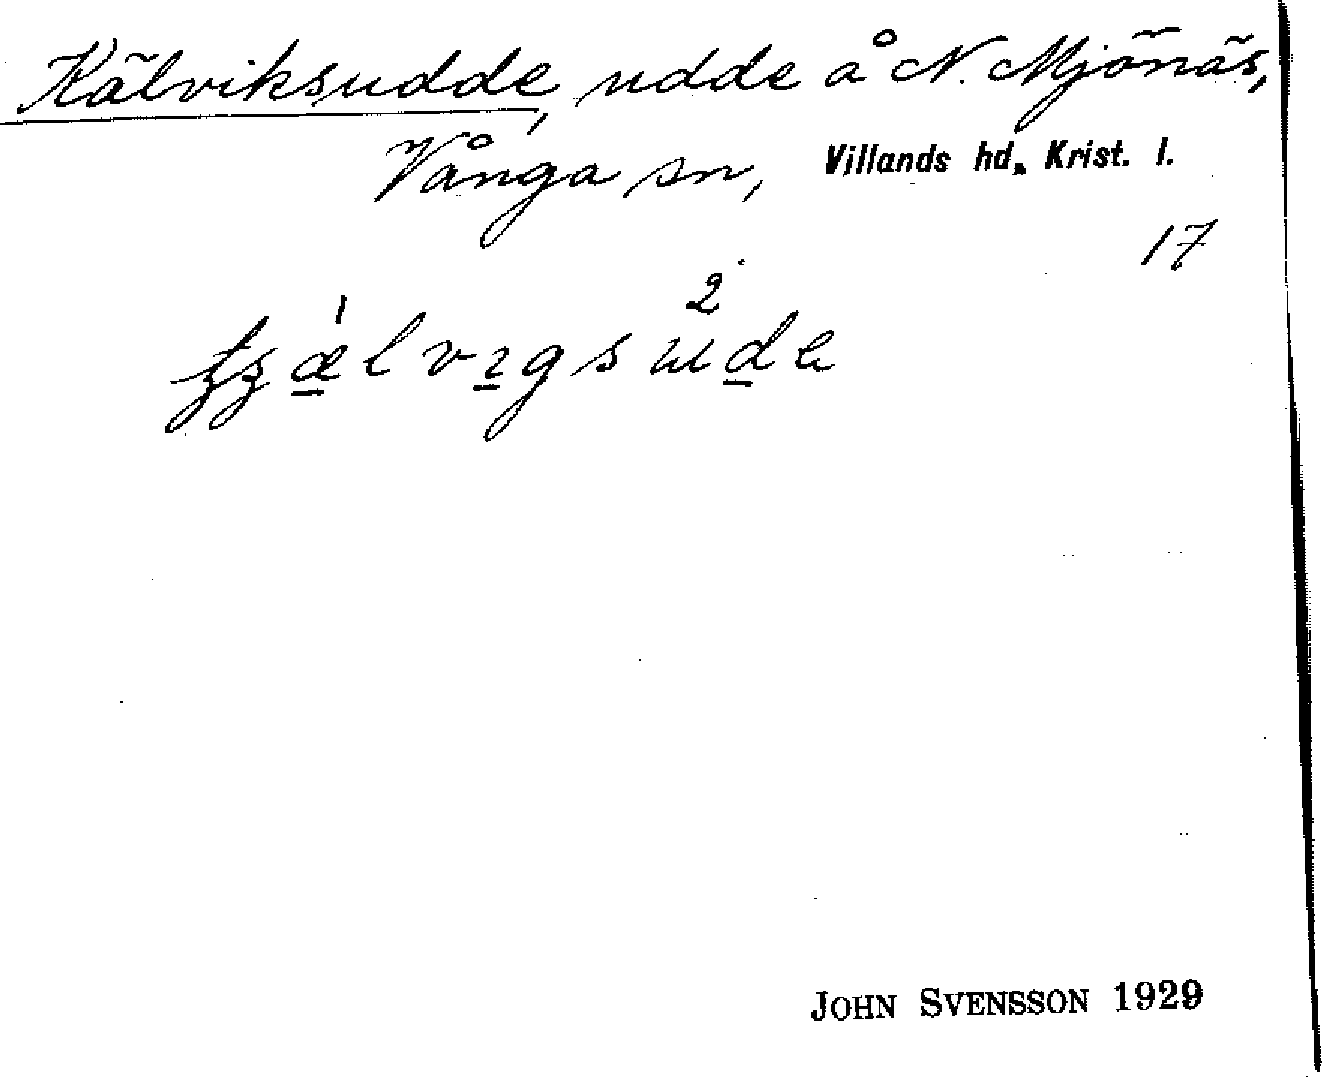 Kälviksudde, udde å N. Mjönäs,
Vånga sn, Villands hd, Krist. l.
17
JOHN SVENSSON 1929